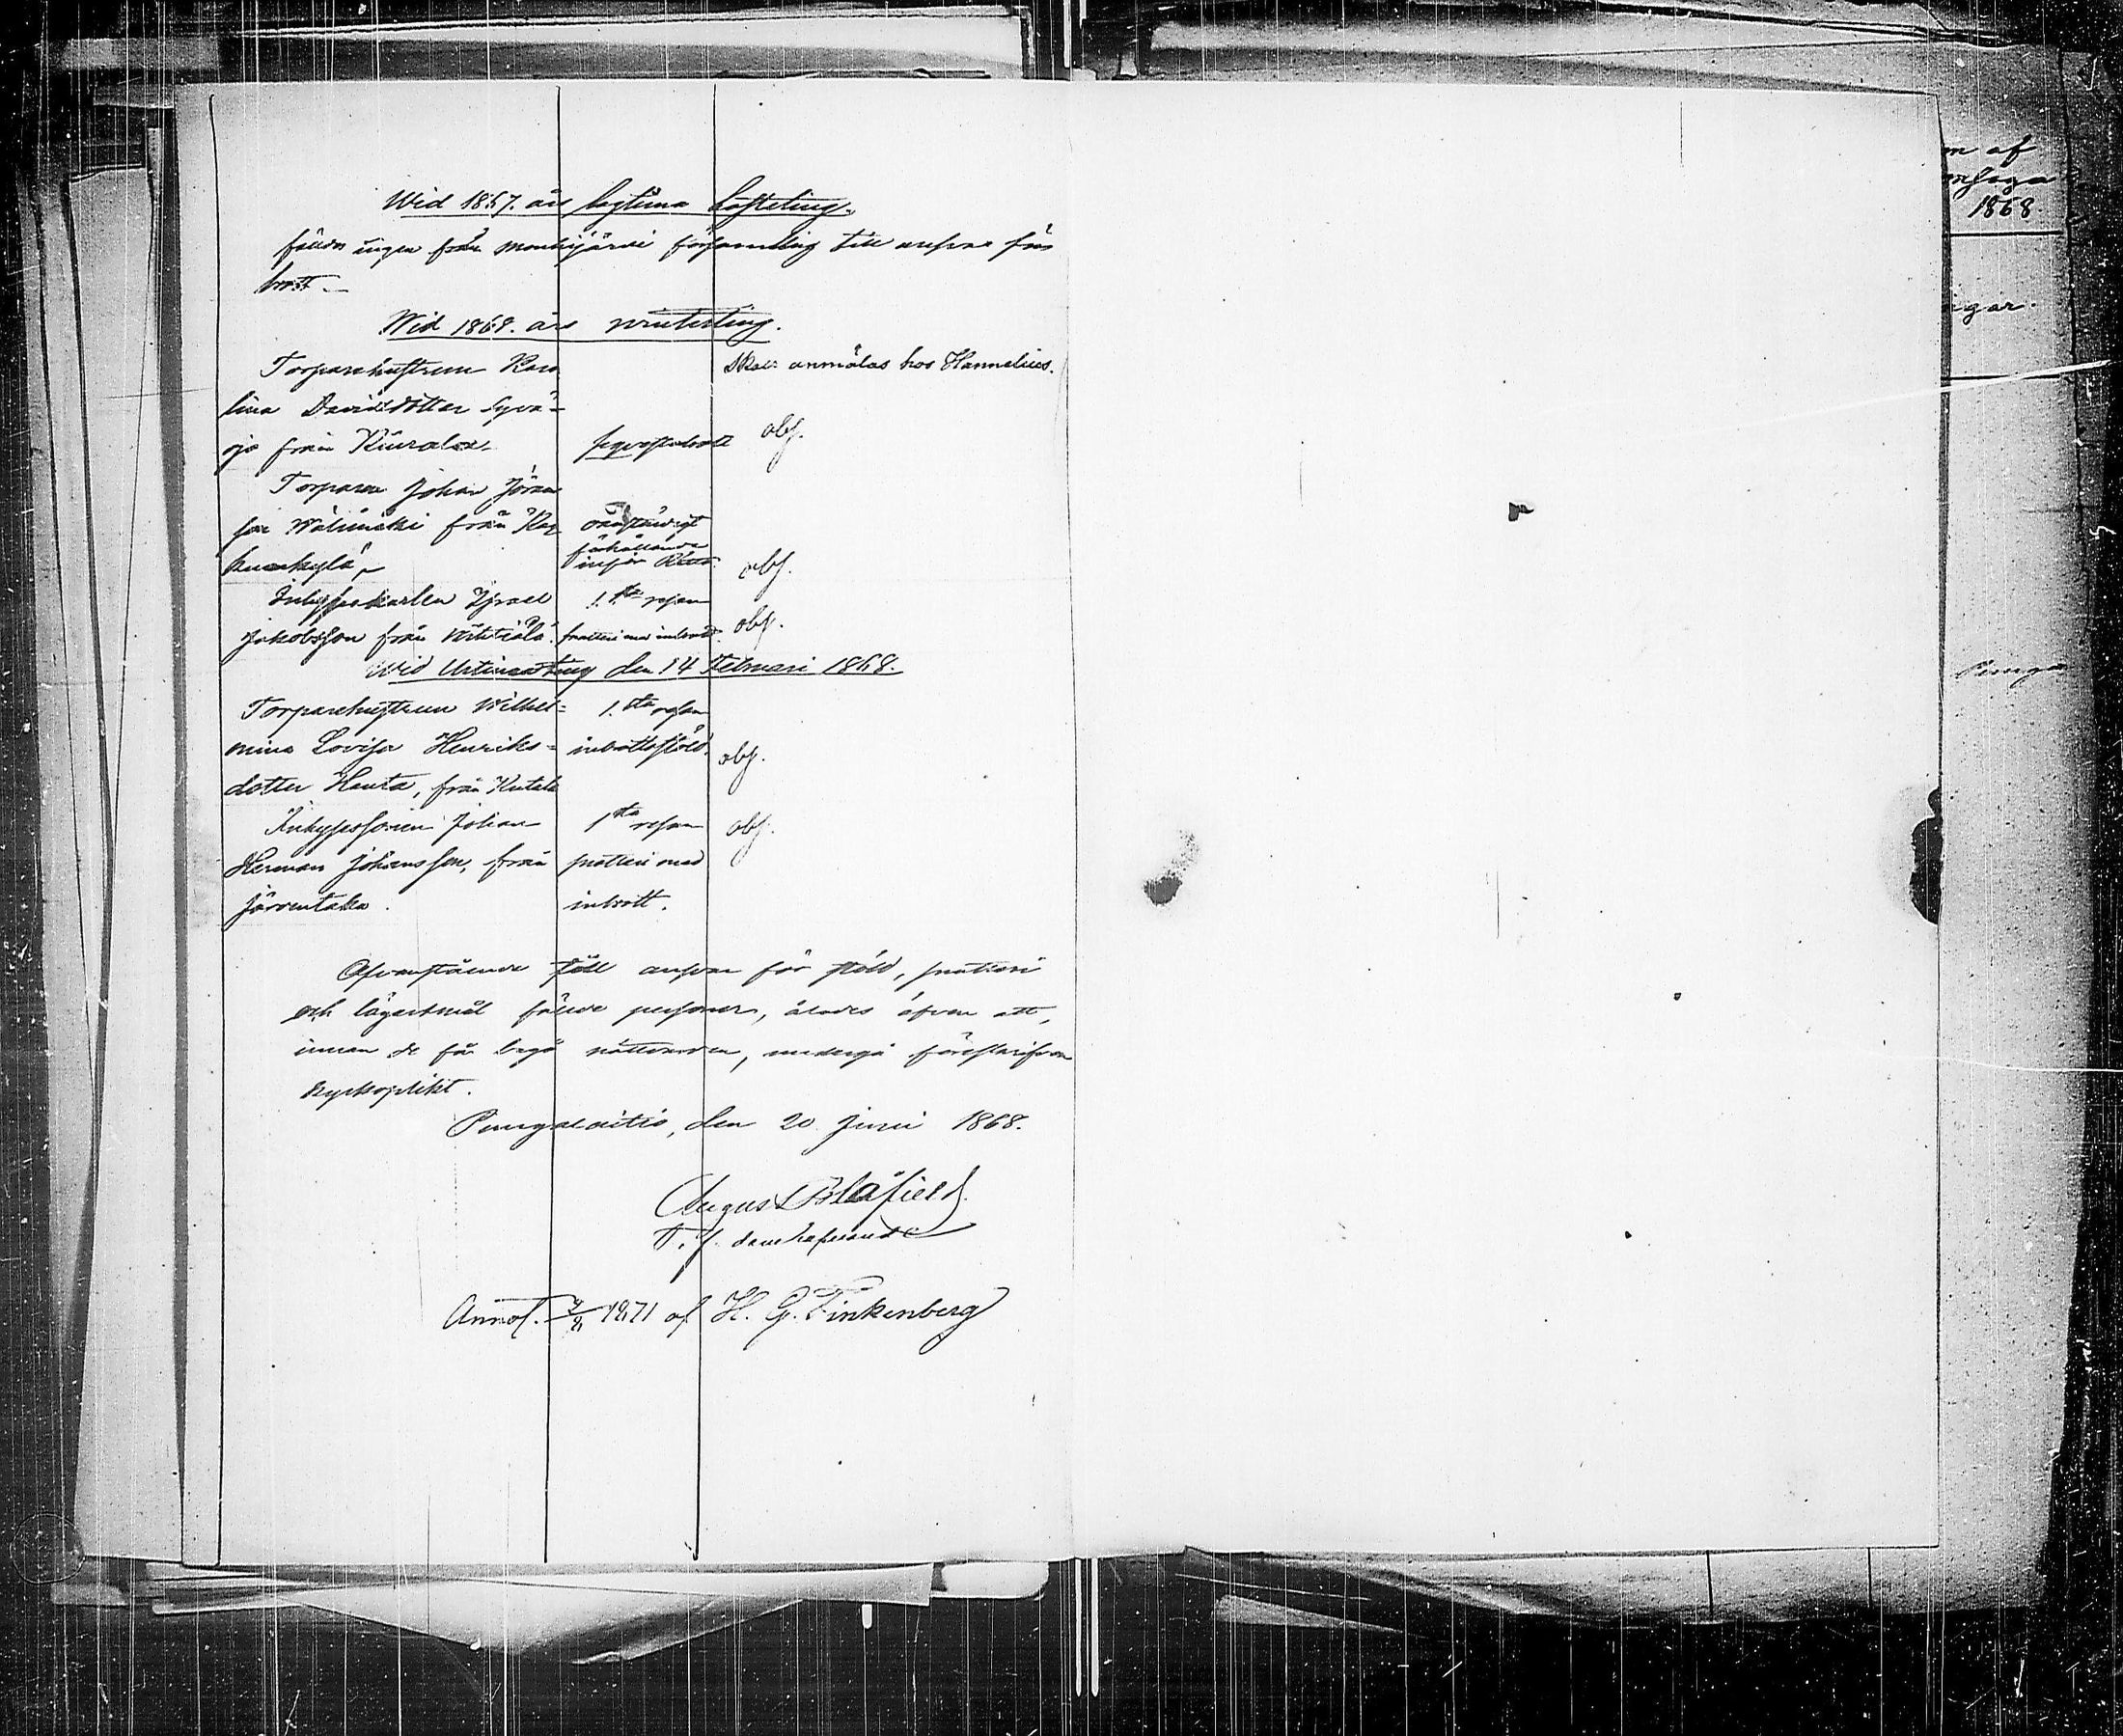 Wid 1867. års lagtima hösteting.
fälldes ingen från Mouhijärvi församling till ansvar för
brott.—
Wid 1868. års winterting.
Torparehustrun Karo
lina Davidsdotter Syvä-
oja från Kiurala.
sqvasterbrott
Skall anmälas hos Hannelius.
obs.
Torparen Johan Jöran
son Wälimäki från
kuankylä,
oanständigt
förhållande
inför Rätta.
obs.
Inhysekarlen Israel
Jakobsson från
1.sta resan
snatteri med inbrott.
obs.
Wid Urtimating den 14 Februari 1868.
Torparehustrun Wilhel=
mina Lovisa Henriks=
dotter Hauta, från
1.sta resan
inbrottsstöld.
obs.
Inhysessonen Johan
Herman Johansson, från
Järventaka.
1sta resan
snatteri med
inbrott.
obs.
Ofvanstående till ansvar för stöld, snatteri
och lägersmål fällde personer, ålades äfven att,
innan de få begå nattvarden, undergå föreskrifven
kyrkoplikt.
den 20 Juni 1868.
August Blåfield
T. f. domhafvande
Annot. 1871 af H. G. Finkenberg
m af
1868.
gar.